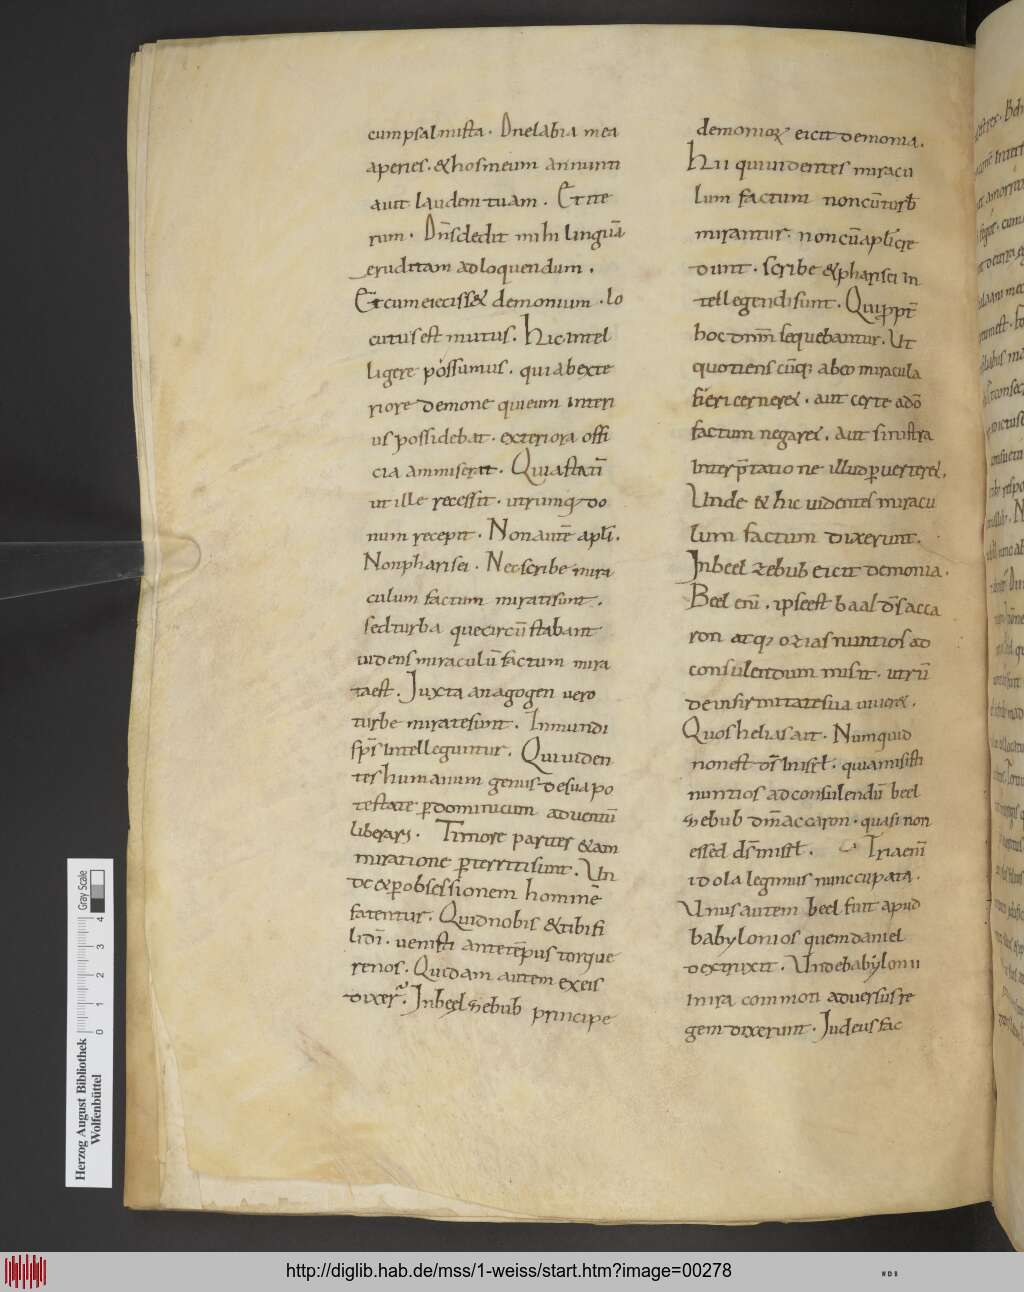 cum psalmista. Dne labia mea
aperies. & hos meum annunti
auit laudem tuam. Et ite
rum. Dns dedit mihi linguā
eruditam ad loquendum.
Et cum eieciss& demonium. lo
cutus est mutus. Hic intel
ligere possumus. qui ab exte
riore demone qui eum interi
us possidebat. exteriora offi
cia ammiserat. Qui astatī
ut ille recessit. utrumq; do
num recepit. Non autē apli.
Non pharisei. Nec scribe mira
culum factum mirati sunt.
sed turba que circū stabant
uidens miraculū factum mira
ta est. Iuxta anagogen uero
turbe mirate sunt. Inmundi
sp̄s intelleguntur. Qui uiden
tes humanum genus de sua po
testate p dominicum aduentū
liberari. Timore pariter & am
miratione pterriti sunt. Un
de & p obsessionem hominē
fatentur. Quid nobis & tibi fi
li dī. uenisti ante tēpus torque
re nos. Quidam autem ex eis
dixer̄. In beelzebub principe
demoniorꝫ eicit demonia.
Hii qui uidentes miracu
lum factum non cū turb̄
mirantur. non cū aplī cre
dunt. scribe & pharisei in
tellegendi sunt. Qui ppt̄
hoc dn̄m sequebantur. Ut
quotienscūq; ab eo miracula
fieri cerner&. aut certe a dō
factum negar&. aut sinistra
interp̄tatione illud puerter&.
Unde & hic uidentes miracu
lum factum dixerunt.
In beelzebub eicit demonia.
Beel enī. ipse est baal dš acca
ron atq; ozias nuntios ad
consulendum misit. utrū
de infirmitate sua uiuer&.
Quos helias ait. Numquid
non est dš in isrł. quia misisti
nuntios ad consulendū beel
zebub dm̄ accaron. quasi non
ess& dš in isrł. Tria enī
idola legimus nunccupata.
Unus autem beel fuit apud
babylonios quem daniel
dextruxit. Unde babylonii
in ira commoti aduersus re
gem dixerunt. Iudeus fac
Herzog August Bibliothek
Wolfenbüttel
0 1 2 3 4
Gray Scale
http://diglib.hab.de/mss/1-weiss/start.htm?image=00278